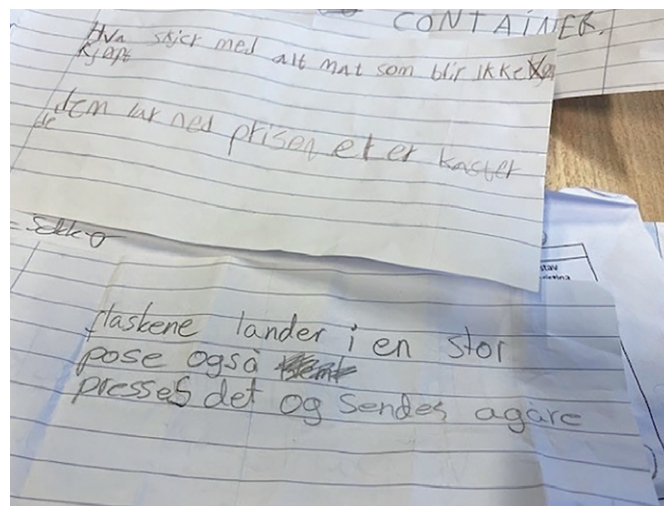 CONTAINER.
Hva skjer med alt mat som blir ikke
kjøpt
dem tar ned prisen et er kaster
de
flaskene lander i en stor
pose også
presses det og sendes agåre